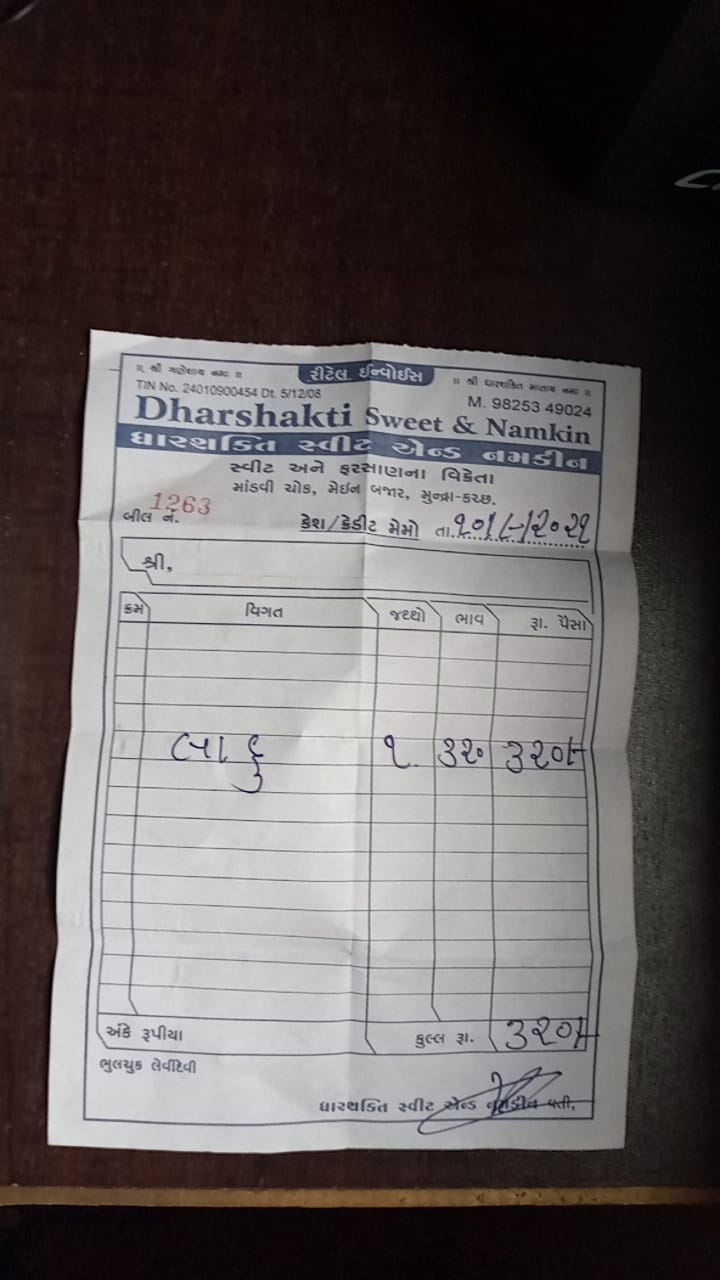 ॥ શ્રી ગણેશાય નમઃ ॥ રીટેલ ઈન્વોઈસ ॥ શ્રી ધારશક્તિ માતાય નમઃ ॥
TIN No. 24010900454 Dt. 5/12/08 M. 98253 49024
Dharshakti Sweet & Namkin
ધારશક્તિ સ્વીટ એન્ડ નમકીન
સ્વીટ અને ફરસાણના વિક્રેતા
માંડવી ચોક, મેઈન બજાર, મુન્દ્રા-કચ્છ.
બીલ નં. 1263 કેશ/ક્રેડીટ મેમો તા.
શ્રી,
ક્રમ વિગત જથ્થો ભાવ રૂા. પૈસા
લાડુ ૧. ૩૨૦ ૩૨૦/-
અંકે રૂપીયા કુલ્લ રૂા. ૩૨૦/-
ભુલચુક લેવીદેવી
ધારશક્તિ સ્વીટ એન્ડ નમકીન વતી,